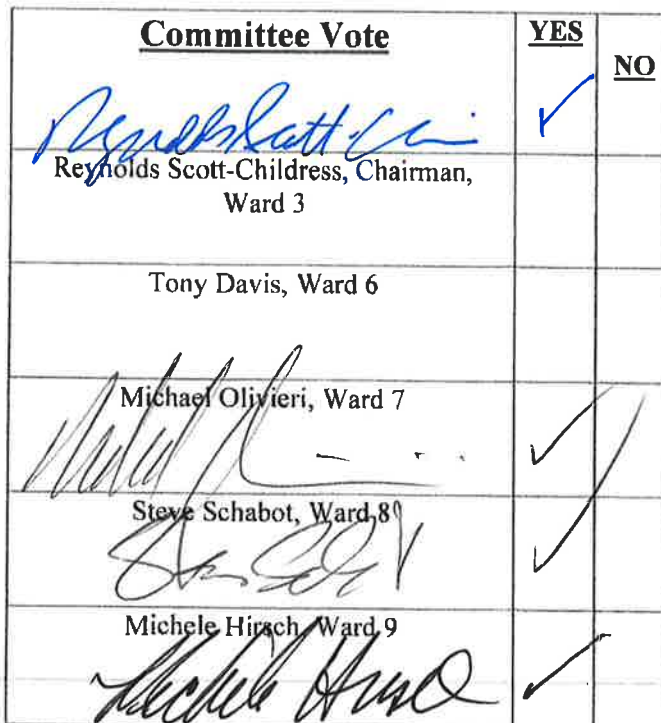 Committee Vote
YES
NO
Reynolds Scott-Childress, Chairman,
Ward 3
Tony Davis, Ward 6
Michael Olivieri, Ward 7
Steve Schabot, Ward 8
Michele Hirsch, Ward 9
Michele Hirsch